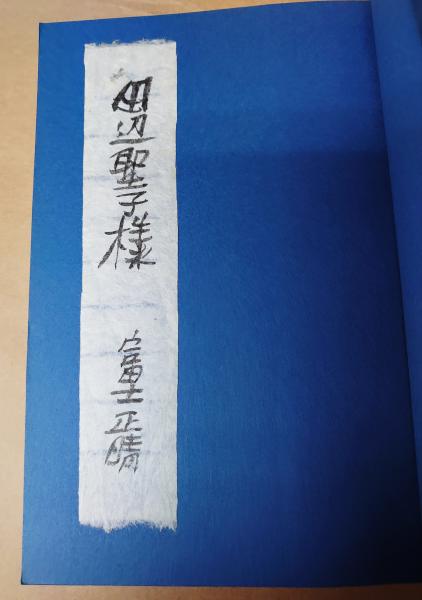 田辺聖子様
富士正晴